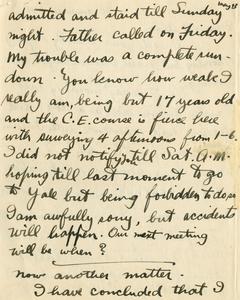 admitted and staid till Sunday
night. Father called on Friday.
My trouble was a complete run-
down. You know how weak I
really am, being but 17 years old
and the C.E. course is fierce here
with surveying 4 afternoons from 1-6.
I did not notify till Sat. A.M.
hoping till last moment to go
to Yale but being forbidden to do so
I am awfully sorry, but accidents
will happen. Our next meeting
will be when?
now another matter.
I have concluded that I